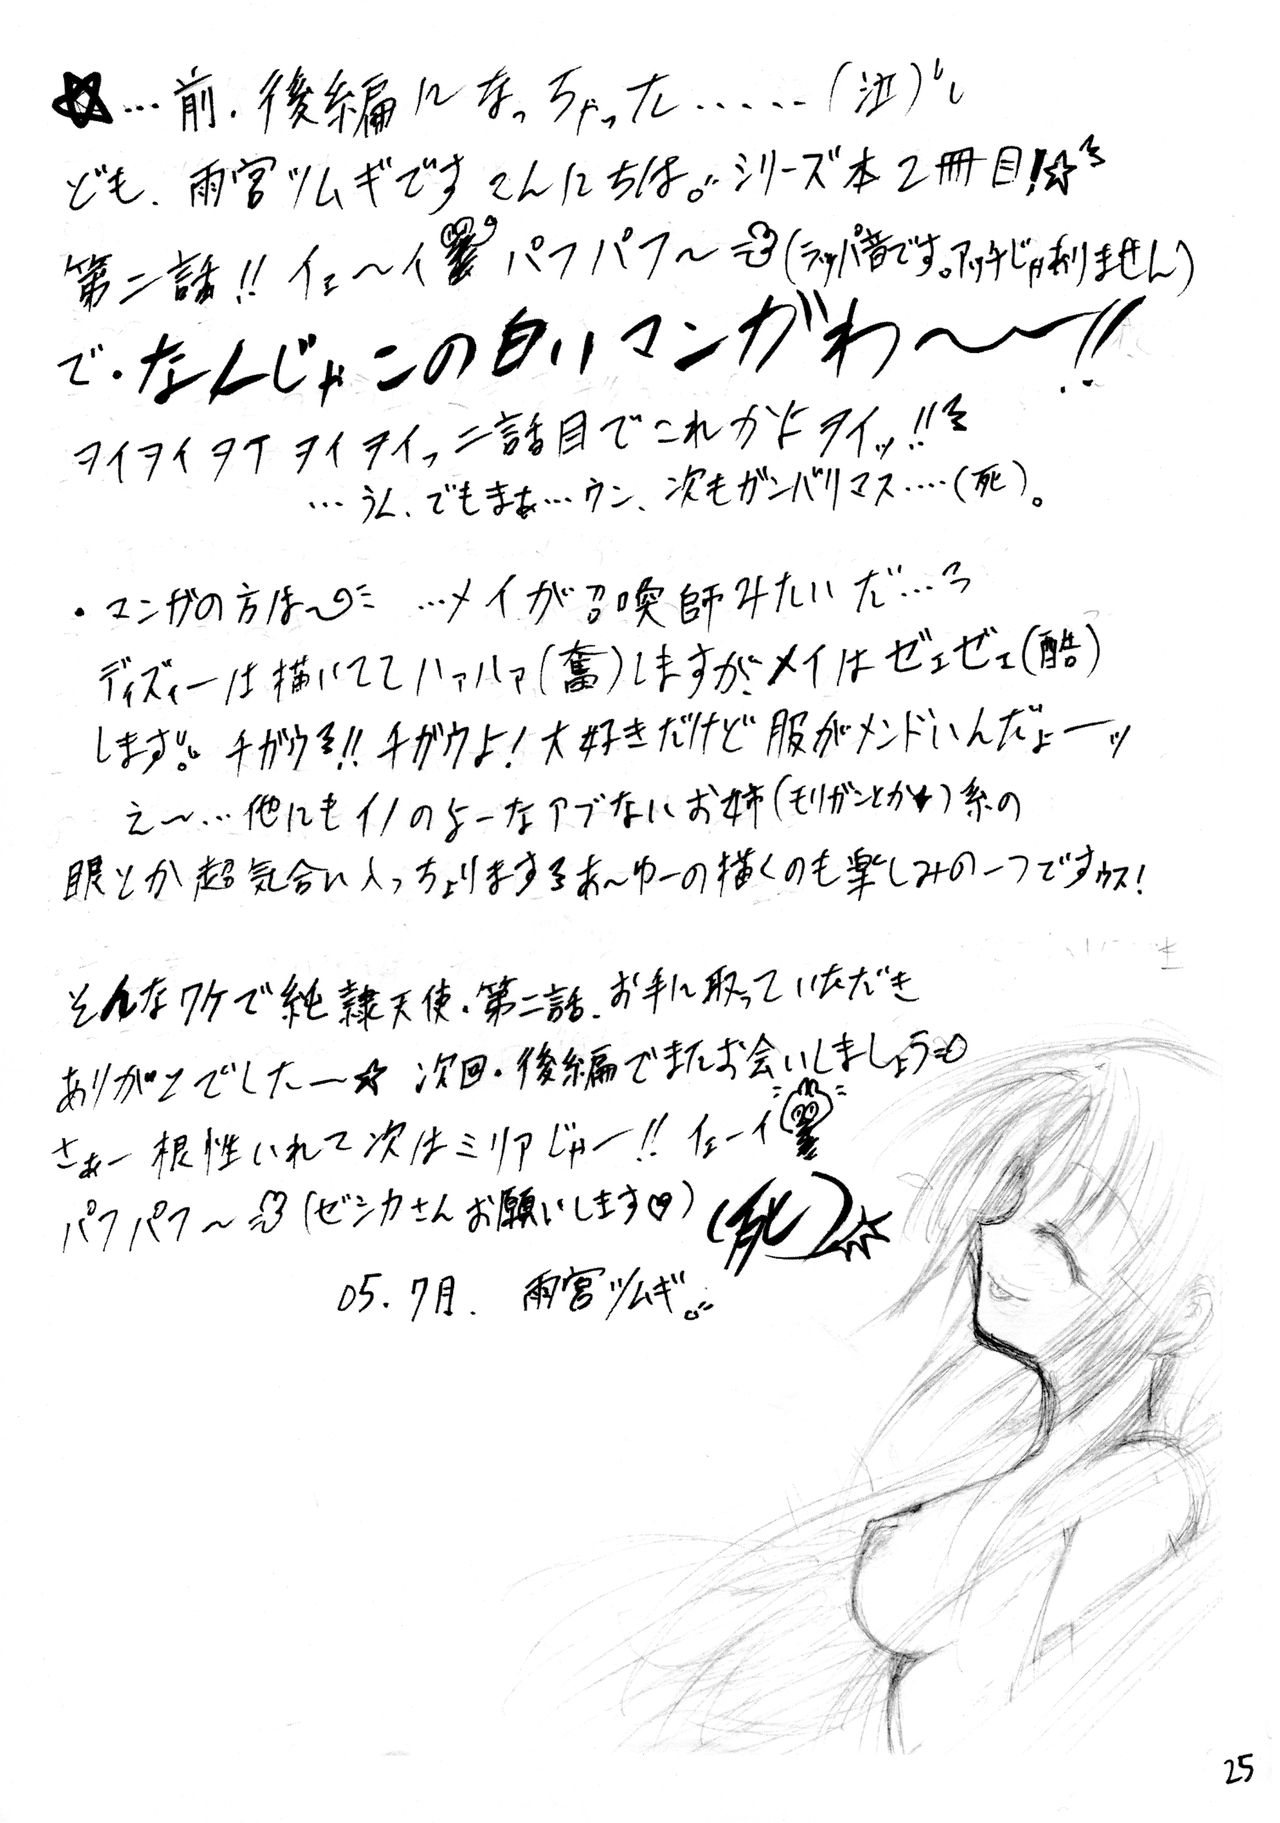 ☆…前・後編になっちゃった……(泣)
ども、雨宮ツムギです こんにちは。シリーズ本2冊目!☆
第二話!! イェ〜イ パフパフ〜(ラッパ音です。アッチじゃありません)
で・なんじゃこの白いマンガわ〜〜!!
ヲイヲイヲイヲイヲイっ二話目でこれかよヲイッ!!
…うん、でもまぁ…ウン、次もガンバリマス…(死)。
・マンガの方は〜 …メイが召喚師みたいだ…
ディズィーは描いててハァハァ(奮)しますが、メイはゼェゼェ(酷)
します。チガウ!!チガウよ!大好きだけど服がメンドいんだよーッ
え〜…他にもイノのよーなアブないお姉(モリガンとか)系の
眼とか超気合い入っちょりますあ〜ゆーの描くのも楽しみの一つですゥス!
そんなワケで純隷天使・第二話、お手に取っていただき
ありがとでしたー☆ 次回・後編でまたお会いしましょう
さぁー根性いれて次はミリアじゃー!! イェーイ
パフパフ〜(ゼシカさんお願いします♡)(死)
05.7月. 雨宮ツムギ。
25